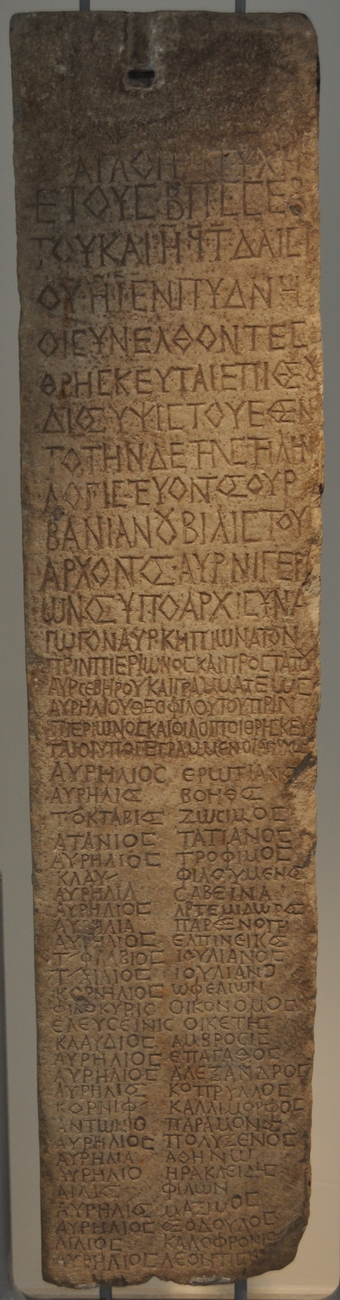 ΑΓΑΘΗ ΤΥΧΗ
ΕΤΟΥΣ ΒΠΣ ΣΕΒ
ΤΟΥ ΚΑΙ ΗϘΤ ΔΑΙΣΙ
ΟΥ
ΟΙ ΣΥΝΕΛΘΟΝΤΕΣ
ΘΡΗΣΚΕΥΤΑΙ ΕΠΙ ΘΕΟΥ
ΔΙΟΣ ΥΨΙΣΤΟΥ ΕΘΕΝ
ΤΟ ΤΗΝΔΕ ΤΗΝ ΣΤΗΛΗΝ
ΛΟΓΙΣΤΕΥΟΝΤΟΣ ΟΥΡ
ΒΑΝΙΑΝΟΥ ΒΙΛΙΣΤΟΥ
ΑΡΧΟΝΤΟΣ ΑΥΡ ΝΙΓΕΡΙ
ΩΝΟΣ ΥΠΟ ΑΡΧΙΣΥΝΑ
ΓΩΓΟΝ ΑΥΡ ΚΗΠΙΩΝΑ ΤΟΝ
ΠΡΙΝ ΠΙΕΡΙΩΝΟΣ ΚΑΙ ΠΡΟΣΤΑΤΟΥ
ΑΥΡ ΣΕΒΗΡΟΥ ΚΑΙ ΓΡΑΜΜΑΤΕΩΣ
ΑΥΡΗΛΙΟΥ ΘΕΟΦΙΛΟΥ ΤΟΥ ΠΡΙΝ
ΠΙΕΡΙΩΝΟΣ ΚΑΙ ΟΙ ΛΟΙΠΟΙ ΘΡΗΣΚΕΥ
ΤΑΙ ΟΙ ΥΠΟΓΕΓΡΑΜΜΕΝΟΙ
ΑΥΡΗΛΙΟΣ ΕΡΩΤΙΑΝΟΣ
ΑΥΡΗΛΙΣ ΒΟΗΘΟΣ
ΤΟΚΤΑΒΙΣ ΖΩΣΙΜΟΣ
ΑΤΑΝΙΟΣ ΤΑΤΙΑΝΟΣ
ΑΥΡΗΛΙΟΣ ΤΡΟΦΙΜΟΣ
ΚΛΑΥ ΦΙΛΟΥΜΕΝΟΣ
ΑΥΡΗΛΙΑ ΣΑΒΕΙΝΑ
ΑΥΡΗΛΙΟΣ ΑΡΤΕΜΙΔΩΡΟΣ
ΑΥΡΗΛΙΟΣ ΕΛΠΙΝΕΙΚΟΣ
Τ ΦΛΑΒΙΟΣ ΙΟΥΛΙΑΝΟΣ
ΙΟΥΛΙΑΝΟ
ΚΟΡΝΗΛΙΟΣ ΩΦΕΛΙΩΝ
ΦΙΛΟΚΥΡΙΣ ΟΙΚΟΝΟΜΟΣ
ΕΛΕΥΣΕΙΝΙΣ ΟΙΚΕΤΗΣ
ΚΛΑΥΔΙΟΣ ΑΜΒΡΟΣΙΣ
ΑΥΡΗΛΙΟΣ ΕΠΑΓΑΘΟΣ
ΑΥΡΗΛΙΟΣ ΑΛΕΞΑΝΔΡΟΣ
ΑΥΡΗΛΙΣ ΚΟΠΡΥΛΛΟΣ
ΚΑΛΛΙΜΟΡΦΟΣ
ΑΝΤΩΝΙΟ ΠΑΡΑΜΟΝΟΣ
ΑΥΡΗΛΙΟΣ ΠΟΛΥΞΕΝΟΣ
ΑΥΡΗΛΙΑ ΑΘΗΝΩ
ΑΥΡΗΛΙΟ ΗΡΑΚΛΕΙΔΗΣ
ΑΙΛΙΣ ΦΙΛΩΝ
ΑΥΡΗΛΙΣ ΜΑΞΙΜΟΣ
ΑΥΡΗΛΙΟΣ ΘΕΟΔΟΥΛΟΣ
ΑΙΛΙΟΣ ΚΑΛΟΦΡΟΝΙΣ
ΑΥΡΗΛΙΟΣ